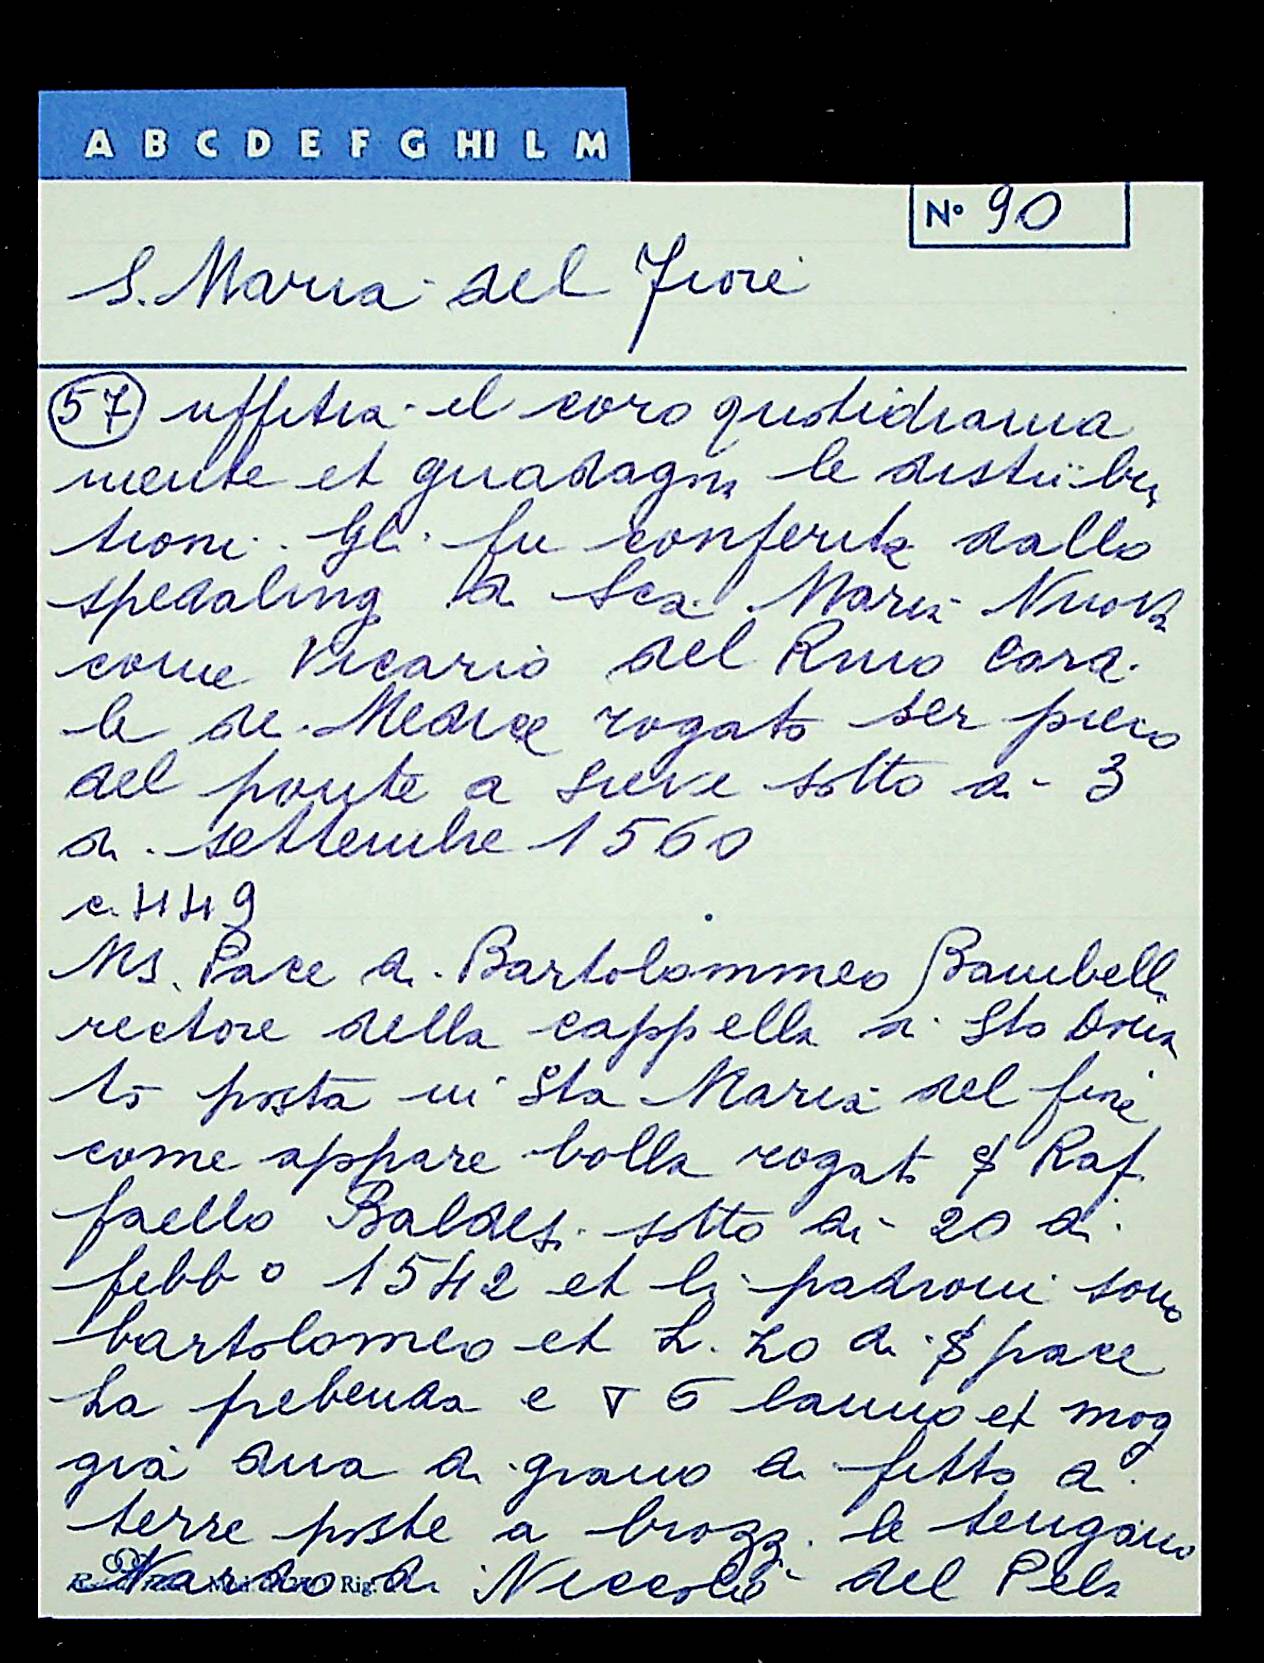 A B C D E F G HI L M
N° 90
S. Maria del Fiore
57 uffitia el coro quotidiana
mente et guadagni le distribu
tioni. Gli fu conferita dallo
spedaling di Sca Maria Nuova
come Vicario del Rmo Card.
le de Medici rogato ser piero
del ponte a Sieve sotto di 3
di settembre 1560
c. 449
Ms. Pace di Bartolommeo Bambelli
rectore della cappella di Sto Dona
to posta in Sta Maria del fiore
come appare bolla rogato Raf
faello Baldesi sotto di 20 di
febb o 1542 et li padroni sono
bartolomeo et L. zo di pace
La prebenda e 6 lanno et mog
gia dua di grano di fitto di
terre poste a brozzi le tengano
Nardo di Niccolò del Pela
Rig.